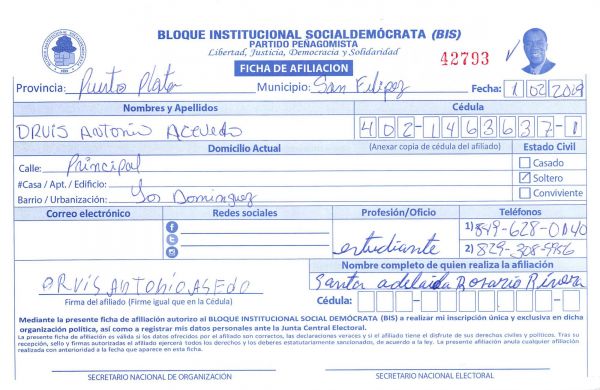 BLOQUE INSTITUCIONAL SOCIALDEMÓCRATA (BIS)
PARTIDO PEÑAGOMISTA
Libertad, Justicia, Democracia y Solidaridad
42793
FICHA DE AFILIACION
Provincia: Puerto Plata Municipio: San Filipez Fecha: 1 02 2019
Nombres y Apellidos Cédula
ORVIS ANTONIO ACEVEDO 402-1463637-1
Domicilio Actual (Anexar copia de cédula del afiliado) Estado Civil
Calle: Principal Casado
#Casa / Apt. / Edificio: Soltero
Barrio / Urbanización: Los Dominguez Conviviente
Correo electrónico Redes sociales Profesión/Oficio Teléfonos
1) 849-628-0140
estudiante 2) 829-308-9986
Nombre completo de quien realiza la afiliación
ORVIS ANTONIO ASEDO Santa adelaida Rosario Rivera
Firma del afiliado (Firme igual que en la Cédula) Cédula:
Mediante la presente ficha de afiliación autorizo al BLOQUE INSTITUCIONAL SOCIAL DEMÓCRATA (BIS) a realizar mi inscripción única y exclusiva en dicha
organización política, así como a registrar mis datos personales ante la Junta Central Electoral.
La presente ficha de afiliación es válida si los datos ofrecidos por el afiliado son correctos, las declaraciones veraces y si el afiliado tiene el disfrute de sus derechos civiles y políticos. Tras su
recepción, sello y firmas autorizadas el afiliado ejercerá todos los derechos y los deberes estatutariamente sancionados, de acuerdo a la ley. La presente afiliación anula cualquier afiliación
realizada con anterioridad a la fecha que aparece en esta ficha.
SECRETARIO NACIONAL DE ORGANIZACIÓN SECRETARIO NACIONAL ELECTORAL